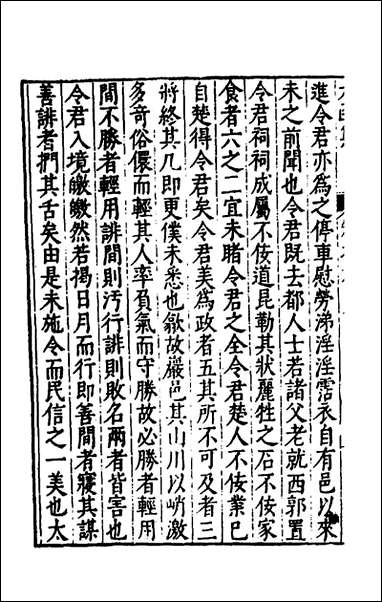 進令君亦爲之停車慰勞涕淫淫霑衣自有邑以來
未之前聞也令君既去都人士若諸父老就西郭置
令君祠祠成屬不佞道昆勒其狀麗牲之石不佞家
食者六之二宜未睹令君之全令君楚人不佞業已
自楚得令君矣令君美爲政者五其所不可及者三
將終其几即更僕未悉也歙故巖邑其山川以峭激
多奇俗儇而輕其人率負氣而守勝故必勝者輕用
間不勝者輕用誹間則汚行誹則敗名兩者皆害也
令君入境皦皦然若揭日月而行即善間者寢其謀
善誹者捫其舌矣由是未施令而民信之一美也太